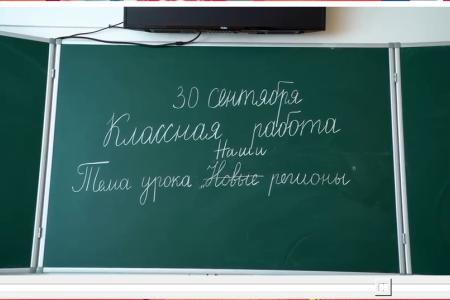 30 сентября
Классная работа
Наши
Тема урока „Новые регионы"